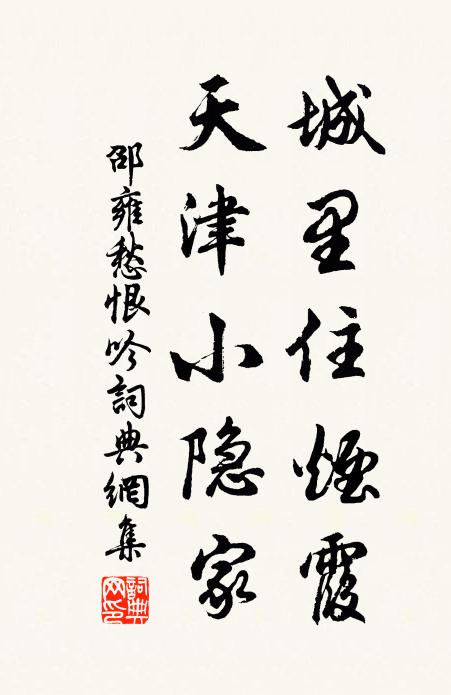 城里住煙霞
天津小隐家
邵雍愁恨吟詞典網集
詞典网印